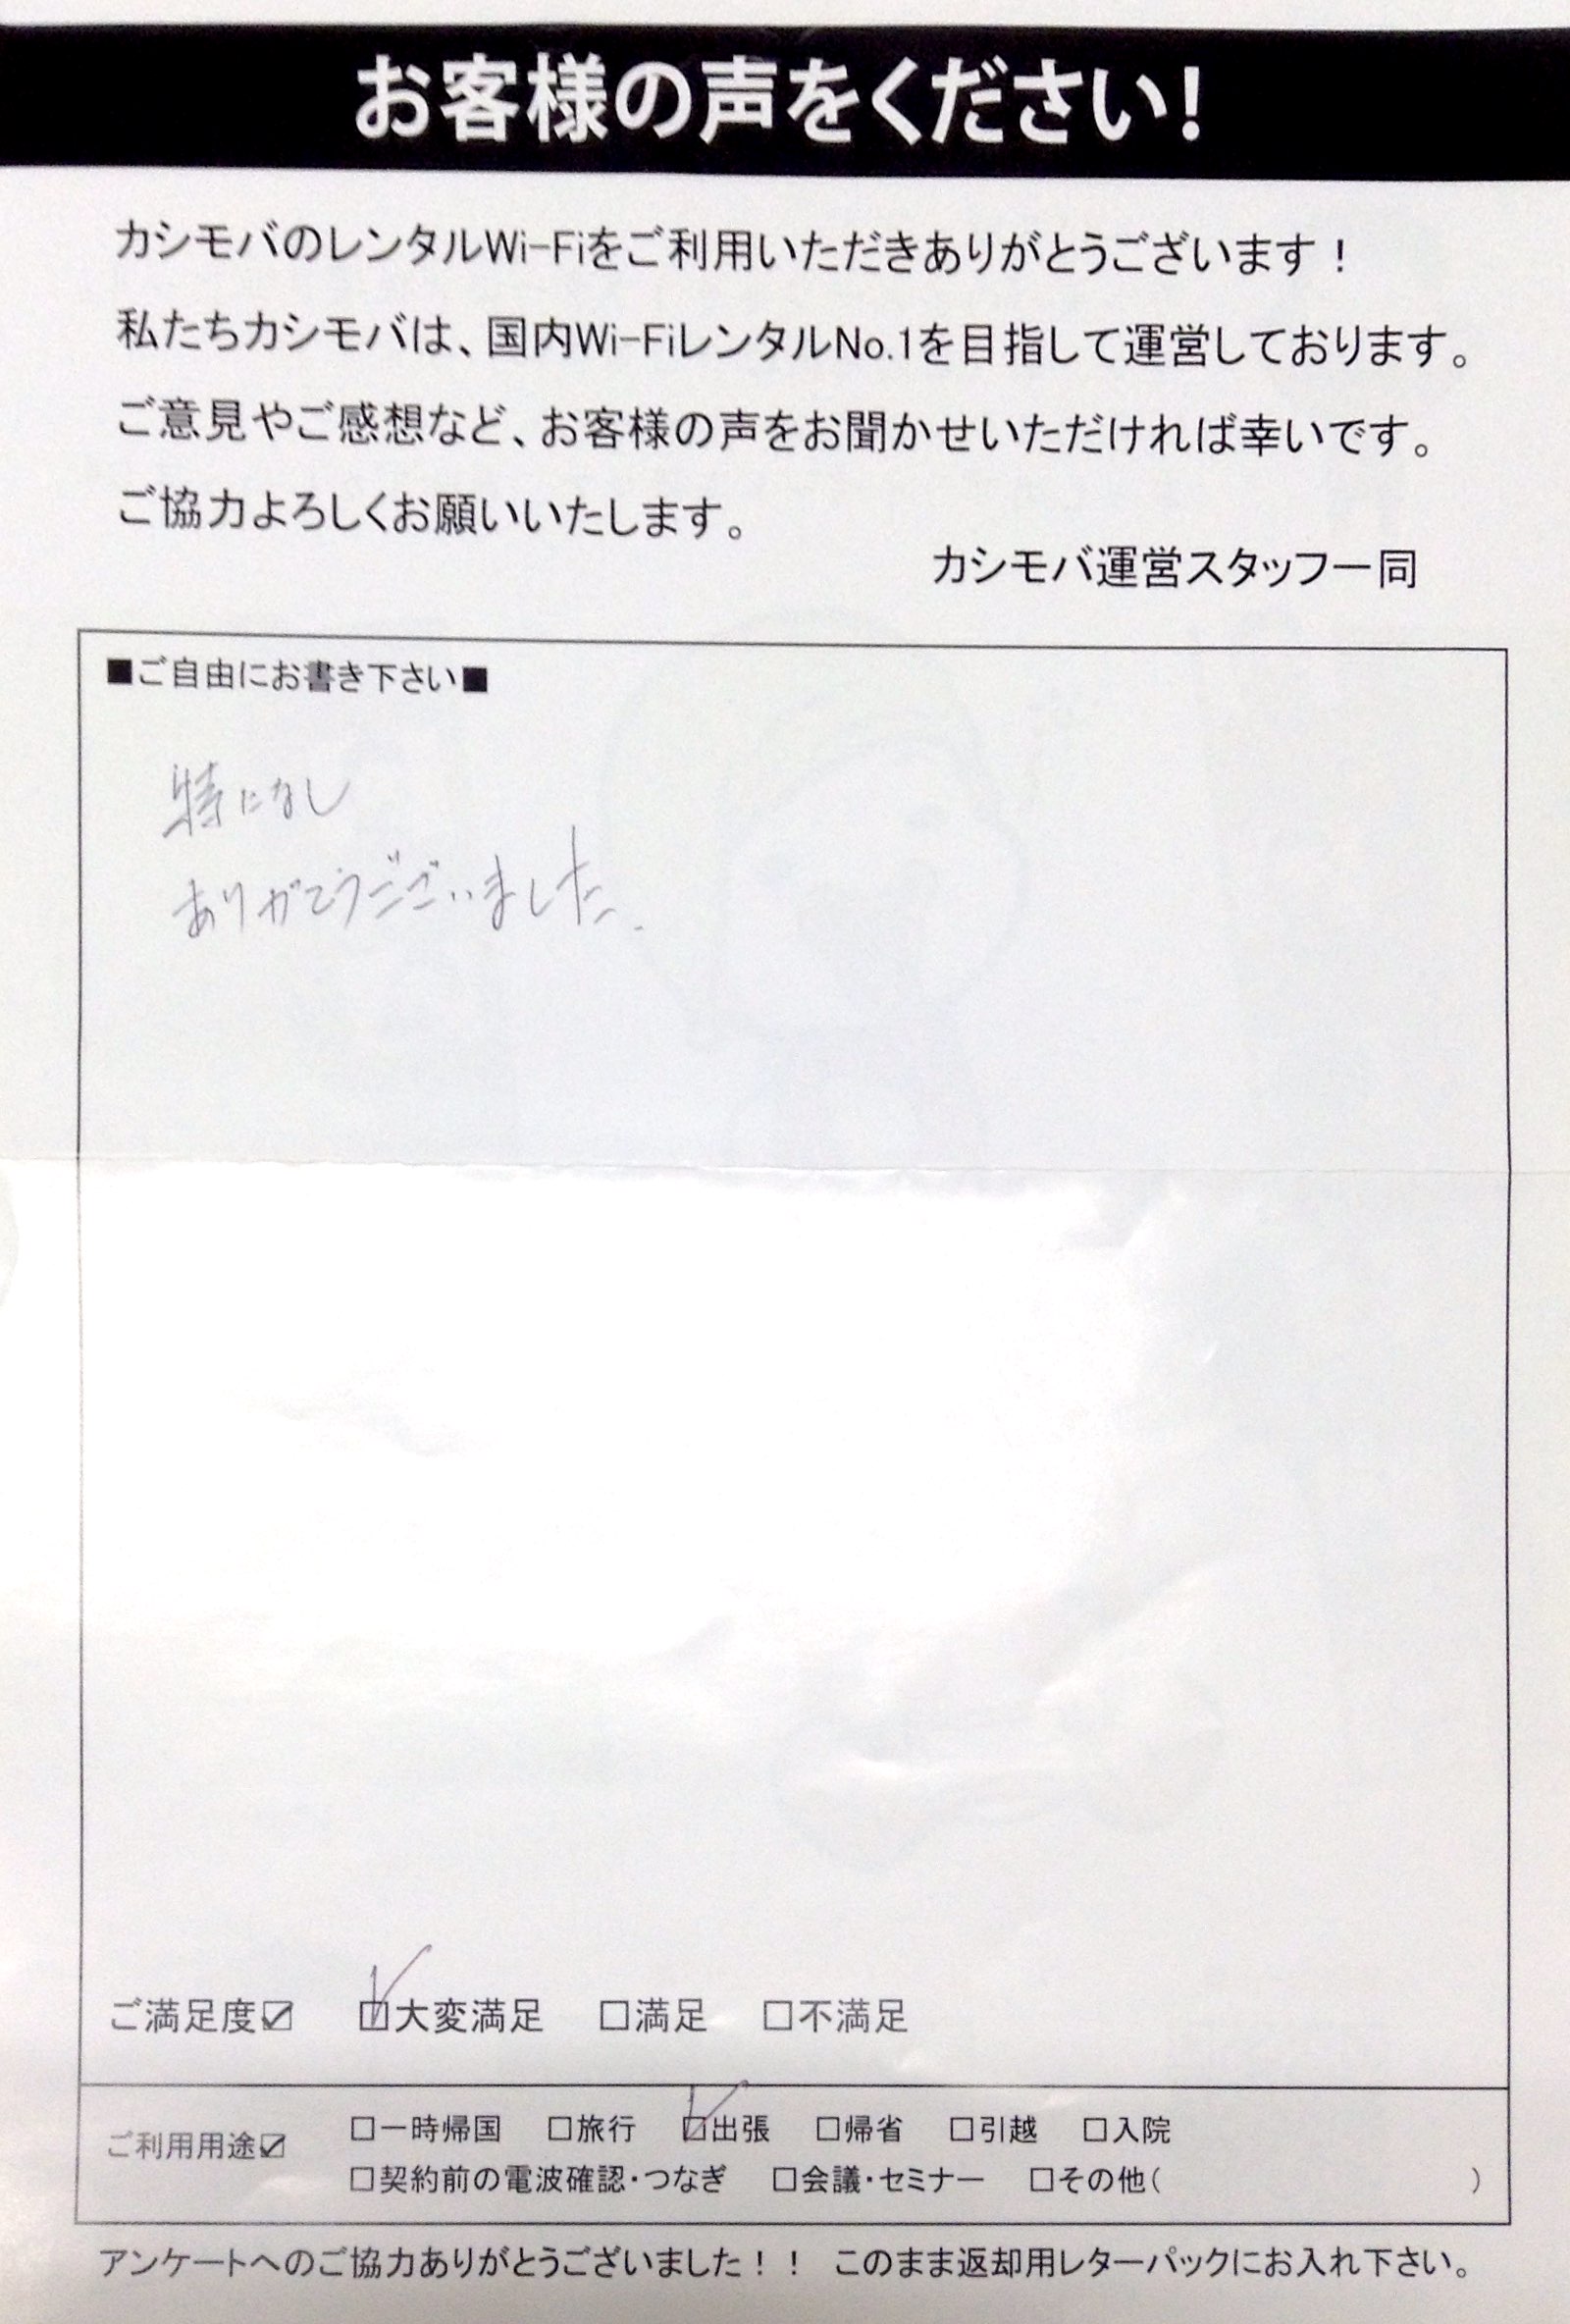 お客様の声をください!
カシモバのレンタルWi-Fiをご利用いただきありがとうございます！
私たちカシモバは、国内Wi-FiレンタルNo.1を目指して運営しております。
ご意見やご感想など、お客様の声をお聞かせいただければ幸いです。
ご協力よろしくお願いいたします。
カシモバ運営スタッフ一同
■ご自由にお書き下さい■
特になし
ありがとうございました.
ご満足度☑ ☑大変満足 □満足 □不満足
ご利用用途☑ □一時帰国 □旅行 ☑出張 □帰省 □引越 □入院
□契約前の電波確認・つなぎ □会議・セミナー □その他( )
アンケートへのご協力ありがとうございました！！ このまま返却用レターパックにお入れ下さい。